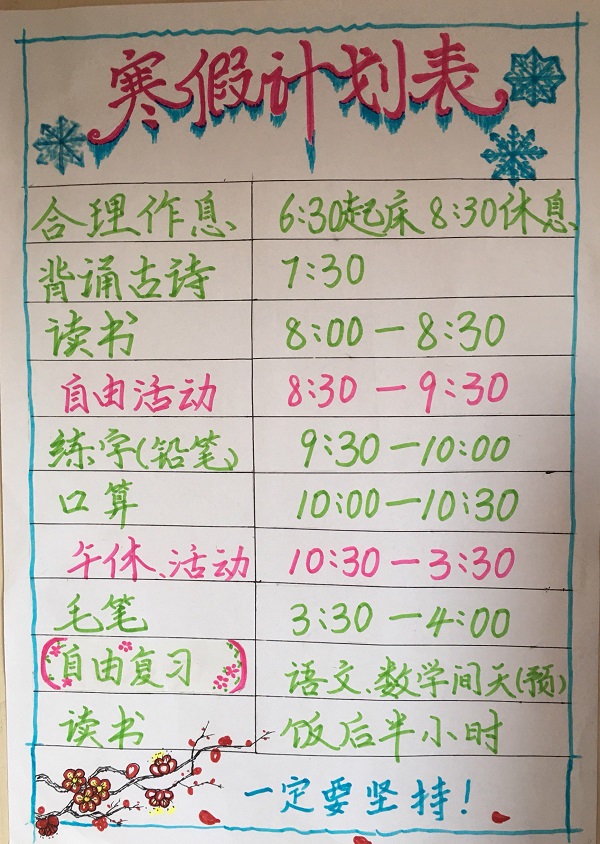 寒假计划表
合理作息 6:30起床 8:30休息
背诵古诗 7:30
读书 8:00—8:30
自由活动 8:30—9:30
练字(铅笔) 9:30—10:00
口算 10:00—10:30
午休、活动 10:30—3:30
毛笔 3:30—4:00
(自由复习) 语文、数学间天(预)
读书 饭后半小时
一定要坚持!